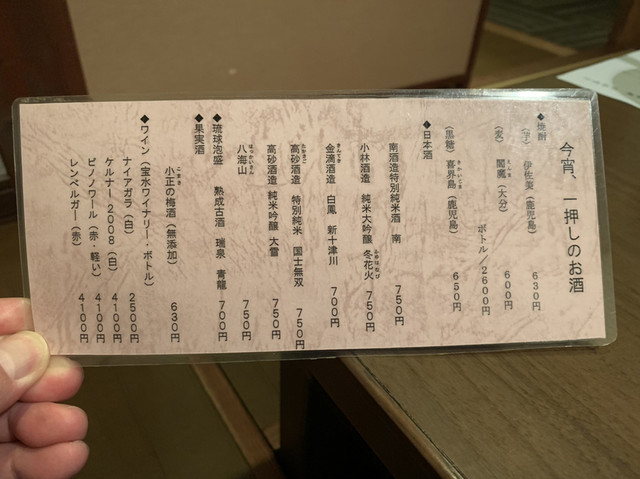 今宵、一押しのお酒
◆焼酎
(芋) 伊佐美 (鹿児島) 630円
(麦) 閻魔 (大分) 600円
ボトル/2600円
(黒糖) 喜界島 (鹿児島) 650円
◆日本酒
南酒造特別純米酒 南 750円
小林酒造 純米大吟醸 冬花火 750円
金滴酒造 白鳳 新十津川 700円
高砂酒造 特別純米 国士無双 750円
高砂酒造 純米吟醸 大雪 750円
八海山 750円
◆琉球泡盛 熟成古酒 瑞泉 青龍 700円
◆果実酒
小正の梅酒 (無添加) 630円
◆ワイン (宝水ワイナリー・ボトル)
ナイアガラ (白) 2500円
ケルナー2008 (白) 4100円
ピノノワール (赤・軽い) 4100円
レンベルガー (赤) 4100円